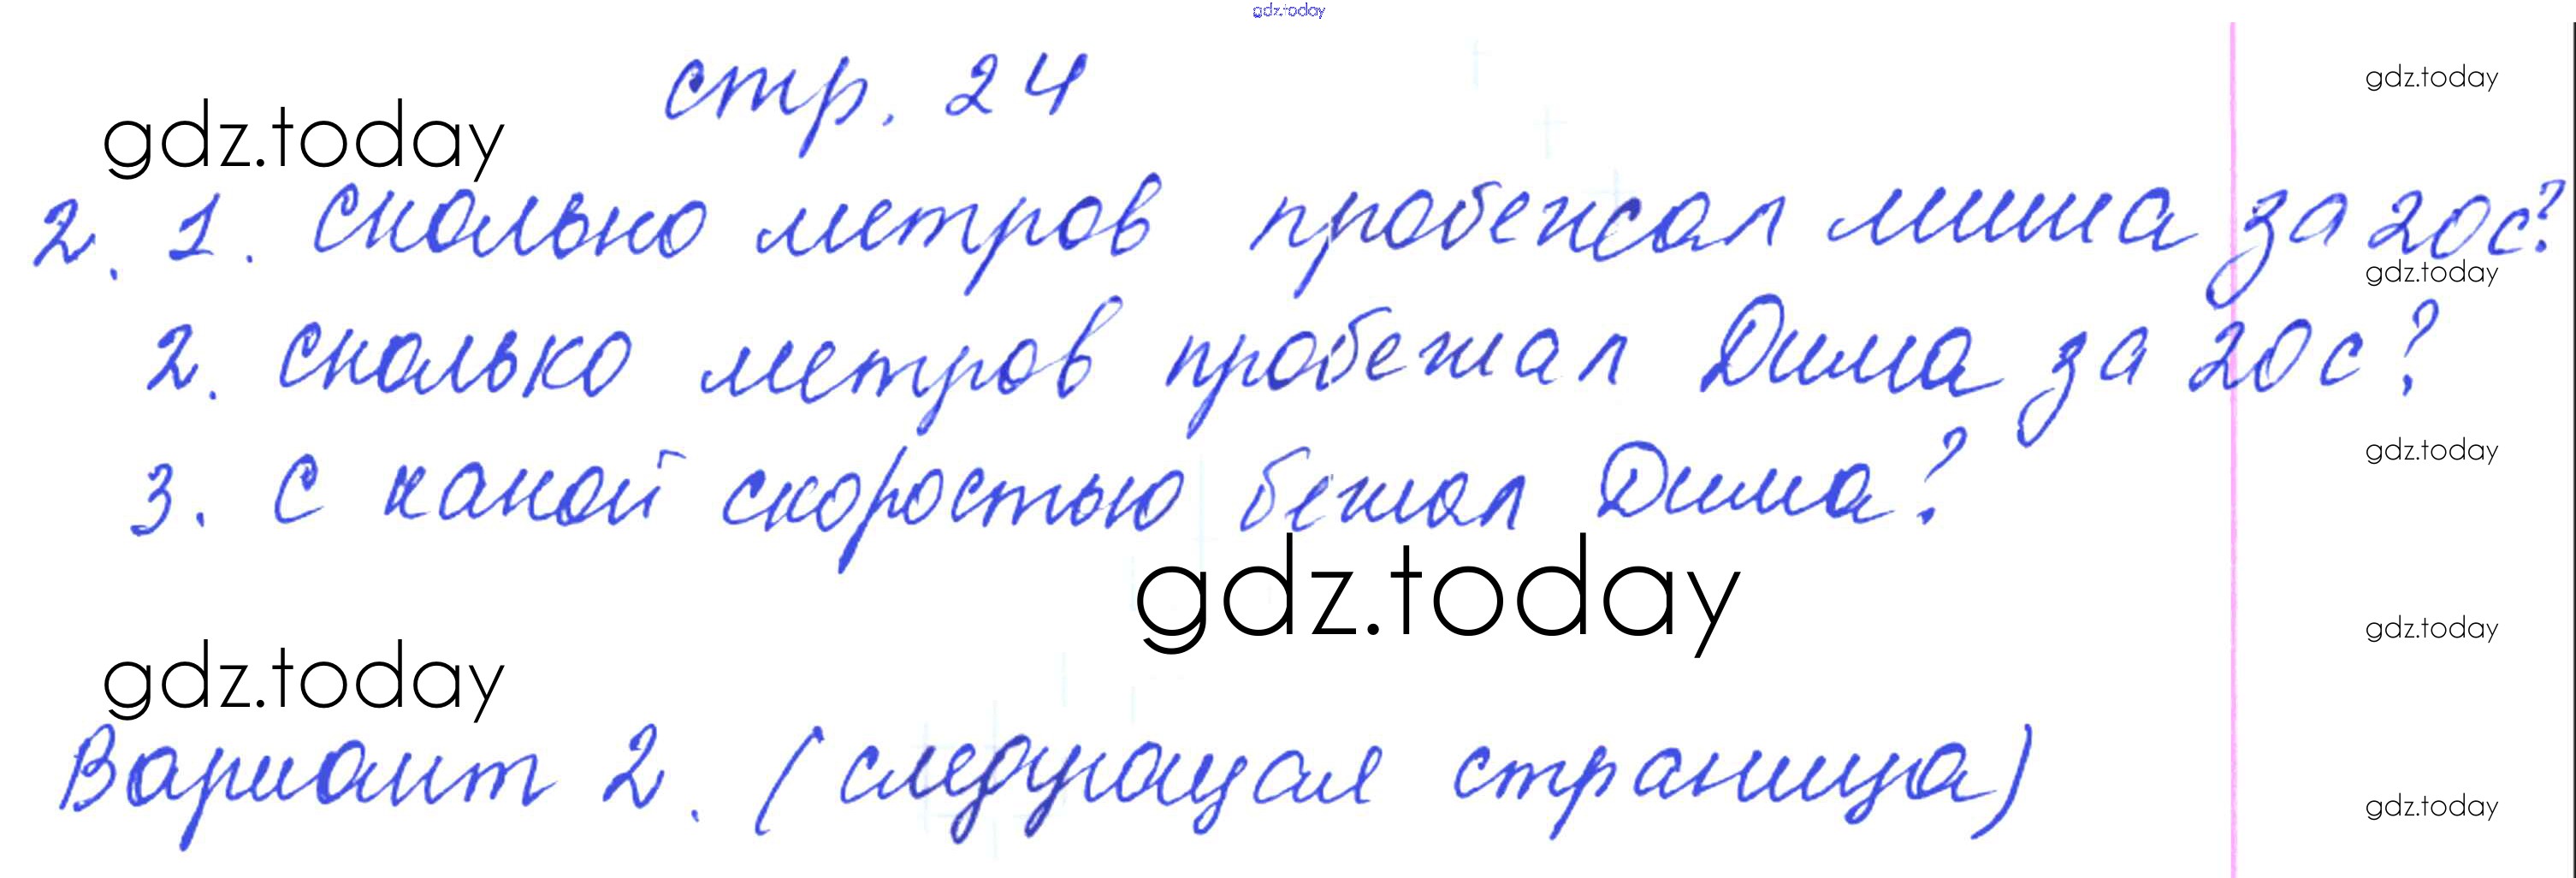 gdz.today
стр. 24
gdz.today
gdz.today
2. 1. Сколько метров пробежал миша за 20с?
gdz.today
2. Сколько метров пробежал Дима за 20с?
3. С какой скоростью бежал Дима?
gdz.today
gdz.today
gdz.today
gdz.today
Вариант 2. (следующая страница)
gdz.today